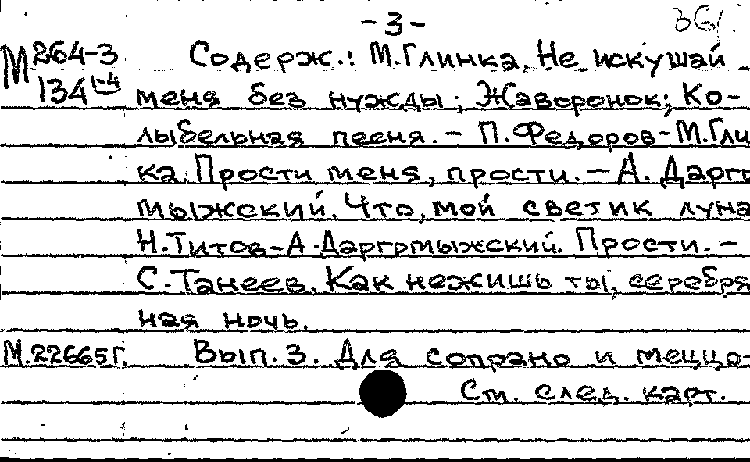 -3-
М 264-3 Содерж.: М.Глинка. Не искушай
134 1-4 меня без нужды; Жаворонок; Ко-
лыбельная песня. – П.Федоров-М.Гли
ка. Прости меня, прости. – А. Дарго
мыжский. Что, мой светик луна
Н.Титов-А.Даргомыжский. Прости. –
С.Танеев. Как нежишь ты, серебря
ная ночь.
М.22665г. Вып.3. Для сопрано и меццо-
См. след. карт.